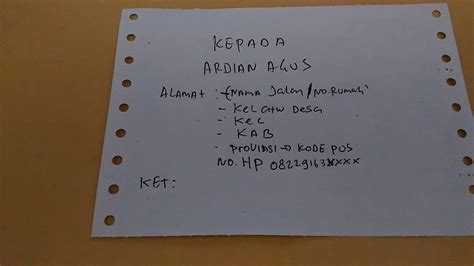 KEPADA
ARDIAN AGUS
ALAMAT : - (NAMA Jalan/No.Rumah)
- KEL atau DESA
- KEC
- KAB
- PROVINSI → KODE POS
NO. HP 08229163xxxx
KET: